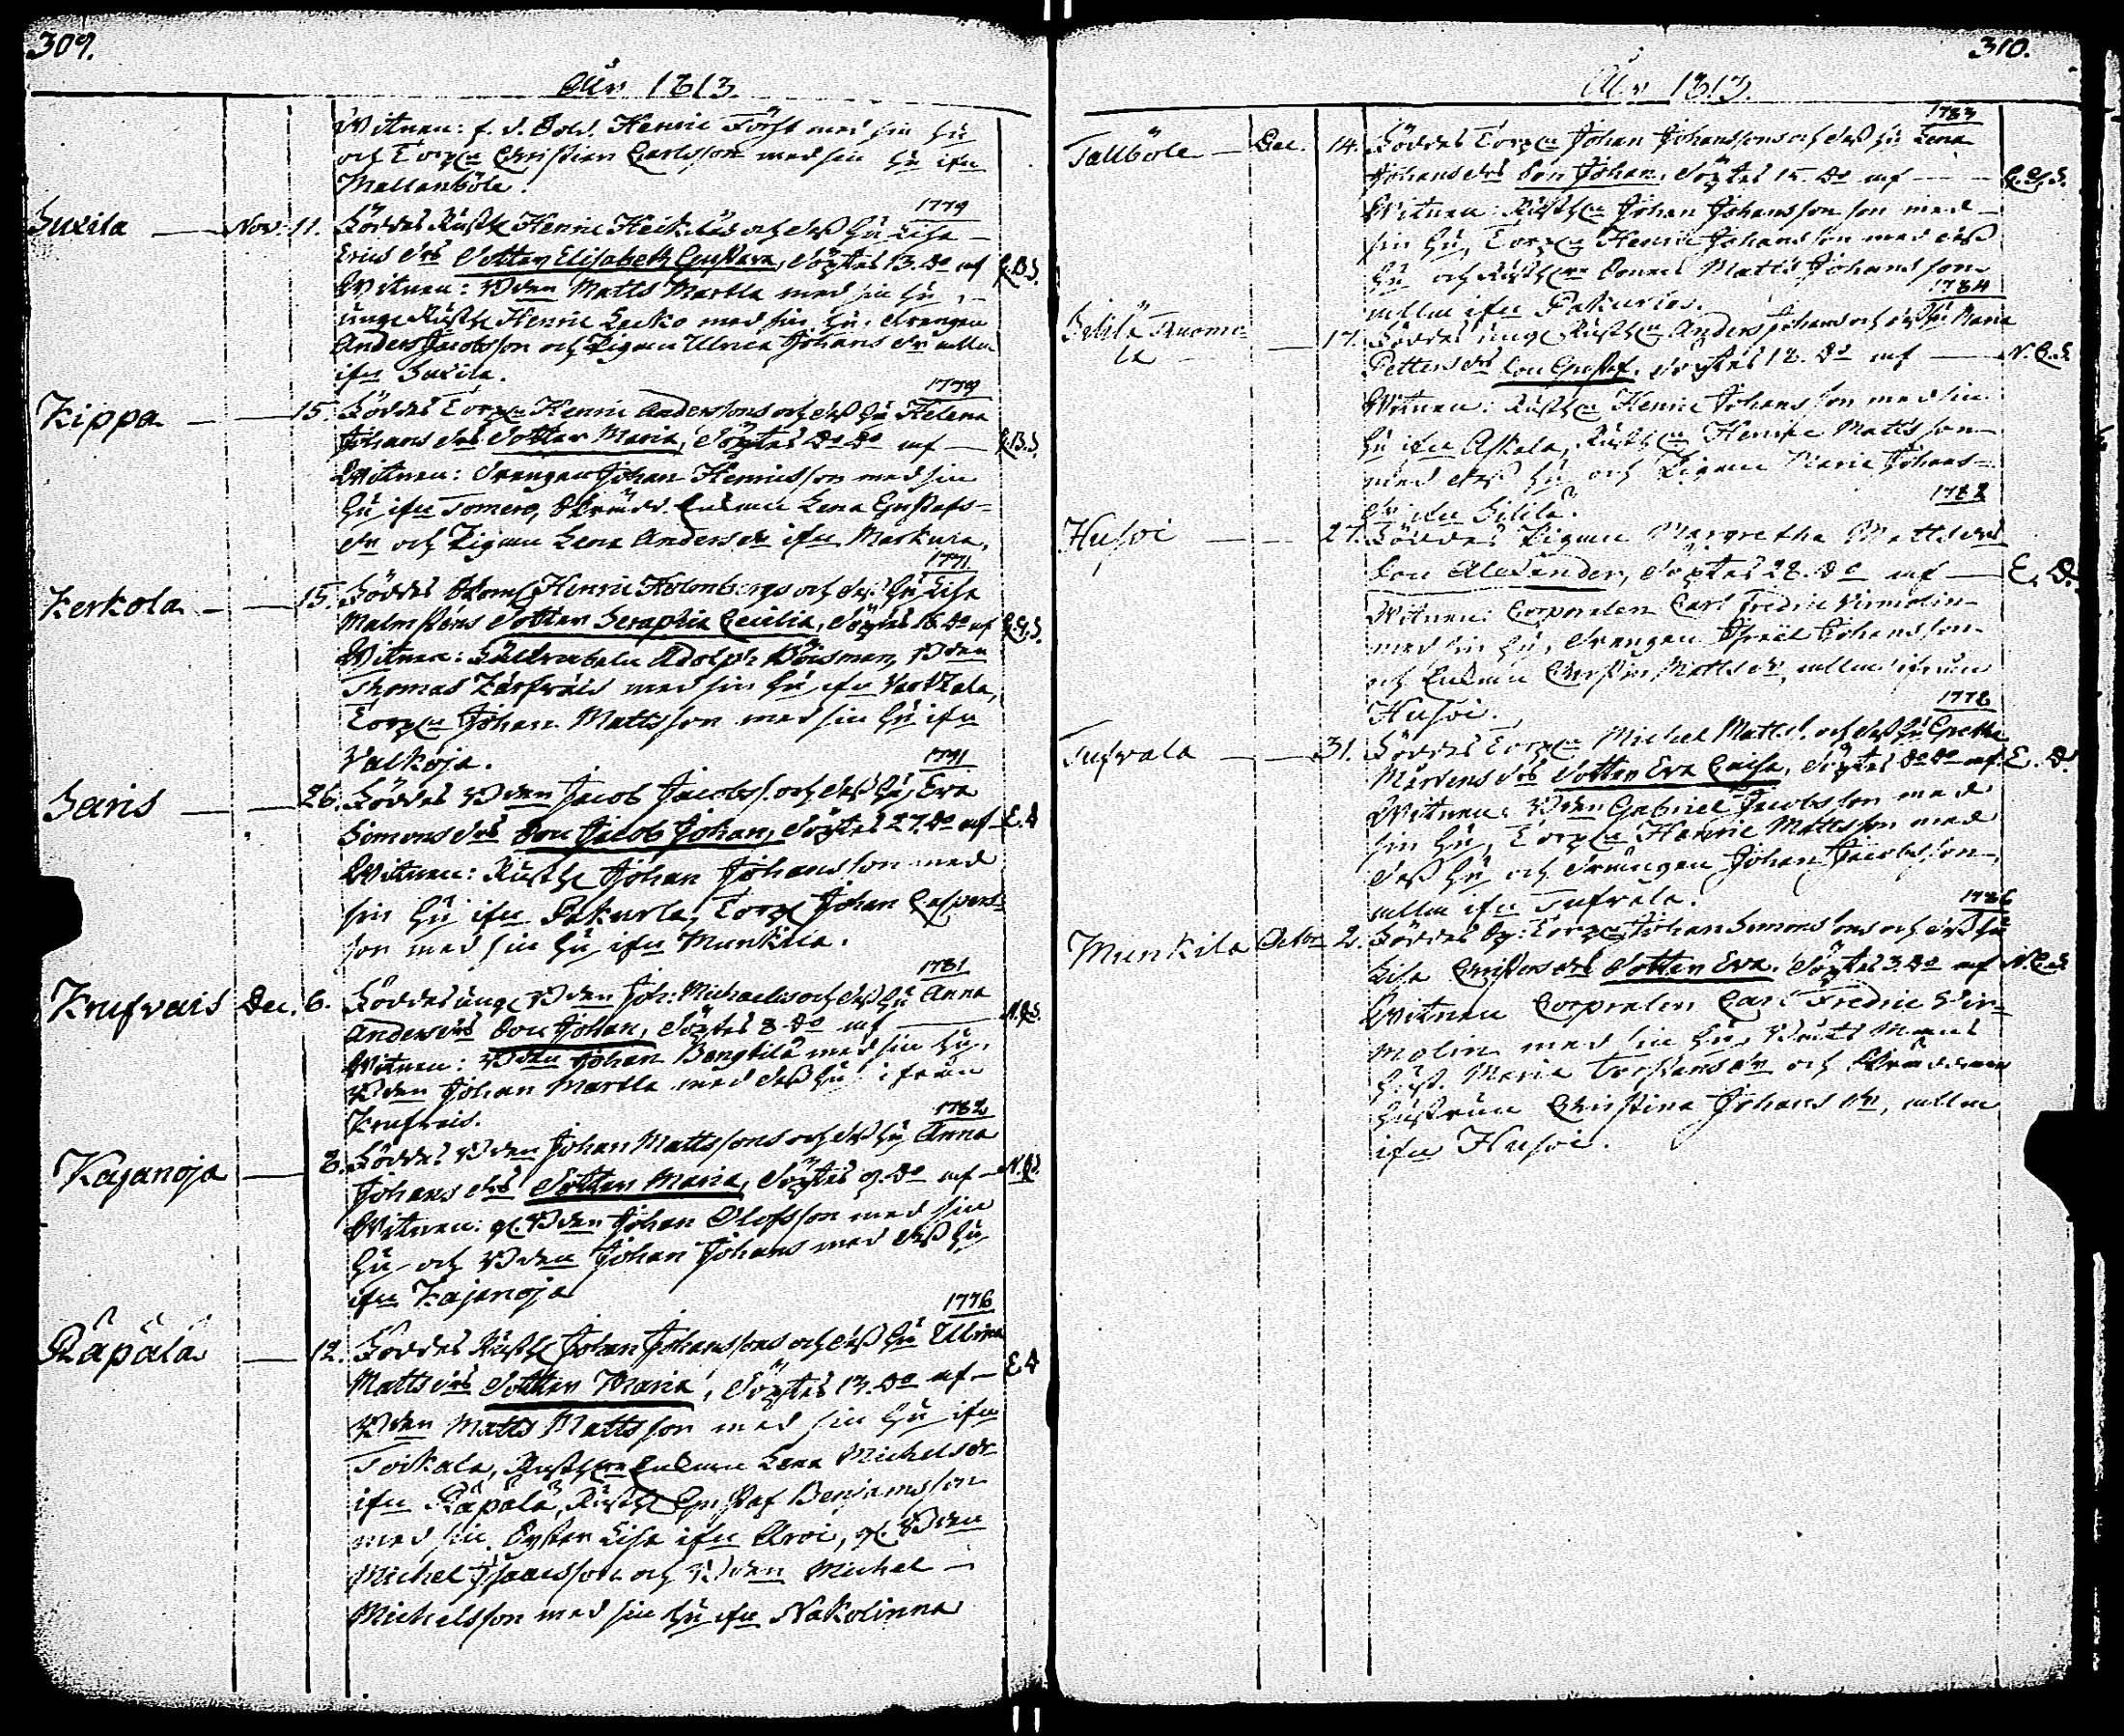 309.
År 1813.
Witnen: f. d. Sold. Henric Först med sin hu
och Torpn Christian Carlsson med sin hu ifn
Mallanböle.
1779
Suxila — Nov. 11. Föddes Rusth Henric Heickilas och dess hu Lisa
Erics drs Dotter Elisabeth Gustava, döptes 13. do af
Witnen: Bden Matts Martla med sin hu,
unge Rusth Henric Lecko med sin hu, drengen
Anders Jacobsson och Pigan Ulrica Johans dr alla
ifn Suxila.
1779
Kippa — 15. Föddes Torpn Henric Anderssons och dess hu Helena
Johans drs Dotter Maria, döptes do do af — C.B.S.
Witnen: Drengen Johan Henricsson med sin
hu ifn Tomero, Skrädd. Enkan Lena Gustafs-
dr och Pigan Lena Anders dr ifn Markula.
1771
Kerkola — 15. Föddes Skom Henric Holmbergs och dess hu Lisa
Malmsténs Dotter Seraphia Cecilia, döptes 16. do af
Witnen: Adolph Boisman, Bden
Thomas Karfvais med sin hu ifn Varkkala,
Torpn Johan Mattsson med sin hu ifn
Valkoja.
1791
Saris — 26. Föddes Bden Jacob Jacobss. och dess hu Eva
Simons drs Son Jacob Johan, döptes 27. do af E.A
Witnen: Rusth Johan Johansson med
sin hu ifn Pakurla, Torp Johan Caspers-
son med sin hu ifn Munkila.
1781
Krufvais Dec. 6. Föddes unge Bden Joh. Michaels och dess hu Anna
Anders drs Son Johan, döptes 8. do af
Witnen: Bden Johan Bengtilä med sin hu,
Bden Johan Martla med dess hu ifrån
Krufvais.
1782
Kajanoja — 8. Föddes Bden Johan Mattssons och dess hu Anna
Johans drs Dotter Maria, döptes 9. do af —
Witnen: gl. Bden Johan Olofsson med sin
hu och Bden Johan Johans med dess hu
ifn Kajanoja
1776
Räpälä — 12. Föddes Rusth Johan Johanssons och dess hu Ulrica
Matts drs Dotter Maria, döptes 13. do af — E.A
Bden Matts Mattsson med sin hu ifn
Toikala, Rusth Enkan Lena Michels dr
ifn Räpälä, Rusth Gustaf Benjamsson
med sin Syster Lisa ifn Arvi, gl. Bden
Michel Isaacsson och Bden Michel
Michelsson med sin hu ifn Nakolinna
310.
År 1813.
1783
Tallböle — Dec. 14. Föddes Torpn Johan Johanssons och dess hu Lena
Johans drs Son Johan, döptes 15. do af
Witnen: Rusthn Johan Johansson med
sin hu, Torpn Henric Johansson med dess
hu och Rusthn Sonen Matts Johansson
alla ifn Pakurla.
1784
Sililä Tuomo-
la — 17. Föddes unge Rusthn Anders Johans och dess hu Maria
Petters drs Son Gustaf, döptes 18. do af — N.C.S.
Witnen: Rusthn Henric Johansson med sin
hu ifn Askala, Rusthn Henric Mattsson
med dess hu och Pigan Maria Johans-
dr ifn Sililä.
1788
Husoi — 27. Föddes Pigan Margretha Matts drs
Son Alexander, döptes 28. do af —
Witnen: Corporalen Carl Fredric Virmolin
med sin hu, drengen Isräel Johansson
och Enkan Christin Matts dr, alla ifrån
Husoi.
1778
Tufvala — 31. Föddes Torpn Michel Matts. och dess hu Gretha
Mårtens drs Dotter Eva Caisa, döptes do do af
Witnen: Bden Gabriel Jacobsson med
sin hu, Torpn Henric Mattsson med
dess hu och drängen Johan Jacobsson
alla ifn Tufvala.
1786
Munkila Octbr 2. Föddes Torpn Johan Simonssons och dess hu
Lisa Christers drs Dotter Eva. döptes 3. do af N.C.S
Witnen Corporalen Carl Fredric Vir-
molin med sin hu, Matts Mans
hust. Maria Torstens dr och
hustrun Christina Johans dr, alla
ifn Husoi.